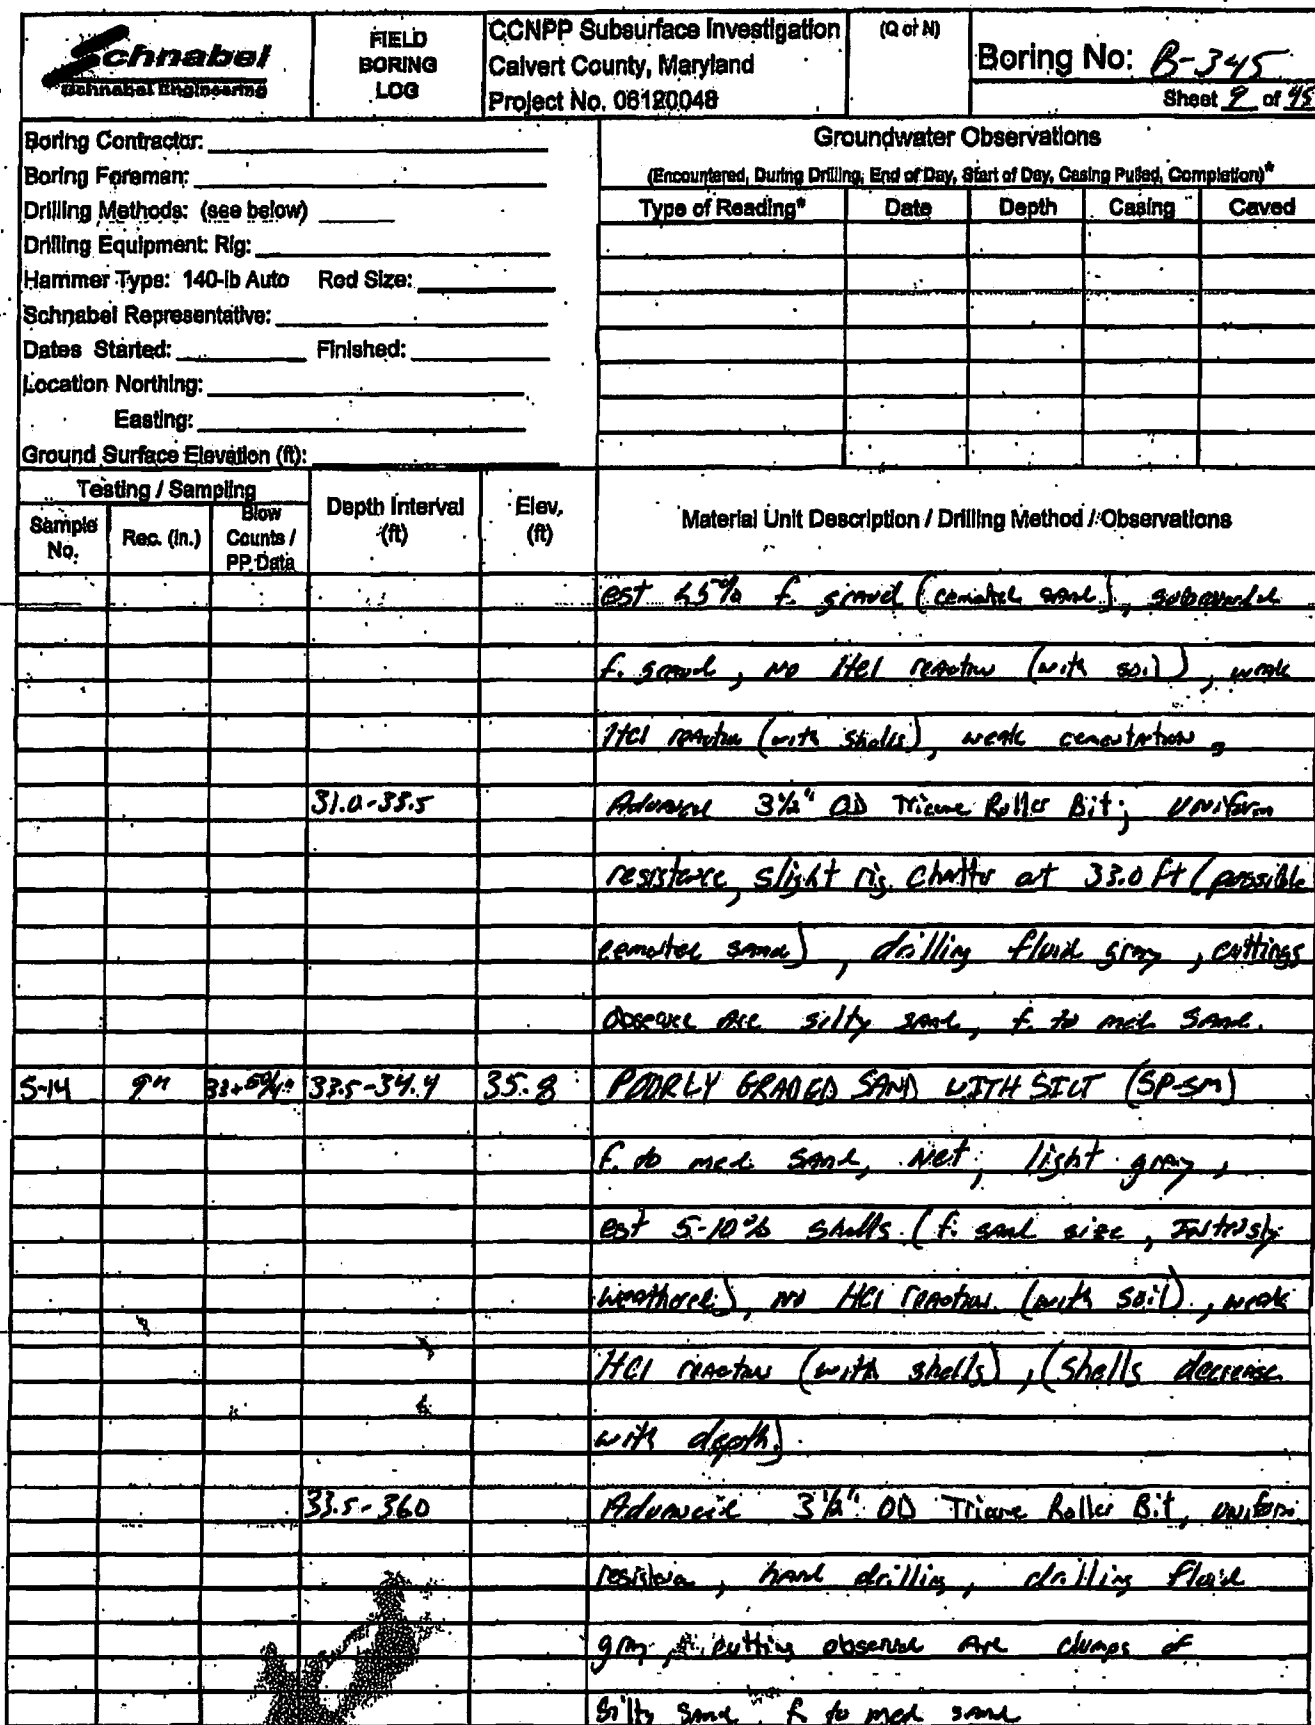 Schnabel
Schnabel Engineering
FIELD
BORING
LOG
CCNPP Subsurface Investigation
Calvert County, Maryland
Project No. 06120048
(Q or N)
Boring No: B-345
Sheet 9 of 45
Boring Contractor:
Boring Foreman:
Drilling Methods: (see below)
Drilling Equipment: Rig:
Hammer Type: 140-lb Auto Rod Size:
Schnabel Representative:
Dates Started: Finished:
Location Northing:
Easting:
Ground Surface Elevation (ft):
Groundwater Observations
(Encountered, During Drilling, End of Day, Start of Day, Casing Pulled, Completion)*
Type of Reading* Date Depth Casing Caved
Testing / Sampling
Sample No. Rec. (in.) Blow Counts / PP Data Depth Interval (ft) Elev. (ft) Material Unit Description / Drilling Method / Observations
est f. gravel (cemented sand), subrounded
f. gravel, no HCl reaction (with soil), weak
HCl reaction (with shells), weak cementation,
31.0-33.5 Advanced 3½" OD Tricone Roller Bit; uniform
resistance, slight rig chatter at 33.0 ft (possible
cemented sand), drilling fluid gray, cuttings
observed are silty sand, f. to med. sand.
S-14 9" 33.5-34.4 35.8 POORLY GRADED SAND WITH SILT (SP-SM)
f. to med. sand, wet, light gray,
est 5-10% shells (f. sand size, intensly
weathered), no HCl reaction (with soil), weak
HCl reaction (with shells), (shells decrease
with depth)
33.5-36.0 Advanced 3½" OD Tricone Roller Bit, uniform
resistance, hard drilling, drilling fluid
gray, cutting observed are clumps of
silty sand f. to med sand